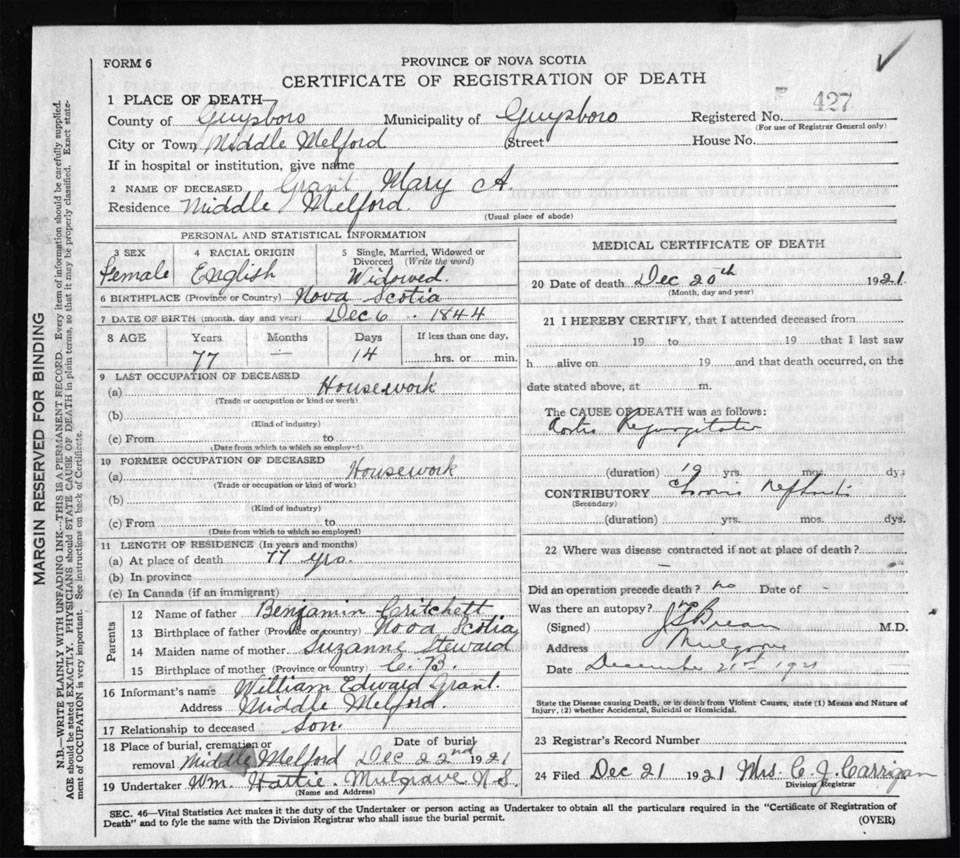 FORM 6
PROVINCE OF NOVA SCOTIA
CERTIFICATE OF REGISTRATION OF DEATH
1 PLACE OF DEATH—
County of Guysboro Municipality of Guysboro Registered No. 427
(For use of Registrar General only)
City or Town Middle Melford Street House No.
If in hospital or institution, give name
2 NAME OF DECEASED Grant Mary A.
Residence Middle Melford.
(Usual place of abode)
PERSONAL AND STATISTICAL INFORMATION
3 SEX 4 RACIAL ORIGIN 5 Single, Married, Widowed or Divorced (Write the word)
Female English Widowed.
6 BIRTHPLACE (Province or Country) Nova Scotia
7 DATE OF BIRTH (month, day and year) Dec 6 .. 1844
8 AGE Years Months Days If less than one day,
77 — 14 hrs. or min.
9 LAST OCCUPATION OF DECEASED
(a) Housework
(Trade or occupation or kind or work)
(b)
(Kind of industry)
(c) From to
(Date from which to which so employed)
10 FORMER OCCUPATION OF DECEASED
(a) Housework
(Trade or occupation or kind of work)
(b)
(Kind of industry)
(c) From to
(Date from which to which so employed)
11 LENGTH OF RESIDENCE (In years and months)
(a) At place of death 77 yrs.
(b) In province
(c) In Canada (if an immigrant)
Parents
12 Name of father Benjamin Critchett
13 Birthplace of father (Province or country) Nova Scotia
14 Maiden name of mother Suzanne Steward
15 Birthplace of mother (Province or country) C. B.
16 Informant's name William Edward Grant.
Address Middle Melford.
17 Relationship to deceased Son.
18 Place of burial, cremation or removal Middle Melford Date of burial Dec 22nd 1921
19 Undertaker Wm. Hattie. Mulgrave N.S.
(Name and Address)
MEDICAL CERTIFICATE OF DEATH
20 Date of death Dec 20th 1921
(Month, day and year)
21 I HEREBY CERTIFY, that I attended deceased from
19 to 19 that I last saw
h alive on 19 and that death occurred, on the
date stated above, at m.
The CAUSE OF DEATH was as follows:
(duration) 19 yrs. mos. dys
CONTRIBUTORY
(Secondary)
(duration) yrs. mos. dys.
22 Where was disease contracted if not at place of death?
—
Did an operation precede death? no Date of -
Was there an autopsy?
(Signed) M.D.
Address Mulgrave
Date December 21st 1921
State the Disease causing Death, or in death from Violent Causes, state (1) Means and Nature of
Injury, (2) whether Accidental, Suicidal or Homicidal.
23 Registrar's Record Number
24 Filed Dec 21 1921 Mrs. C. J. Carrigan
Division Registrar
SEC. 46—Vital Statistics Act makes it the duty of the Undertaker or person acting as Undertaker to obtain all the particulars required in the "Certificate of Registration of
Death" and to fyle the same with the Division Registrar who shall issue the burial permit.
(OVER)
MARGIN RESERVED FOR BINDING
N.B.—WRITE PLAINLY WITH UNFADING INK—THIS IS A PERMANENT RECORD. Every item of information should be carefully supplied.
AGE should be stated EXACTLY. PHYSICIANS should STATE CAUSE OF DEATH in plain terms, so that it may be properly classified. Exact state-
ment of OCCUPATION is very important. See instructions on back of Certificate.